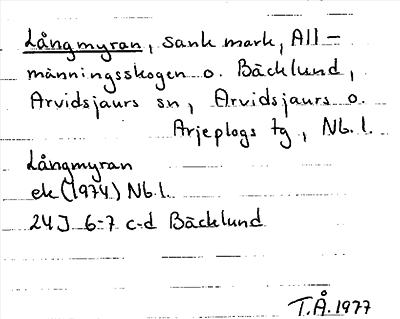 Långmyran, sank mark, All-
männingsskogen o. Bäcklund,
Arvidsjaurs sn, Arvidsjaurs o.
Arjeplogs tg, Nb. l.
Långmyran
ek (1974) Nb.l.
24J 6-7 c-d Bäcklund
T.Å. 1977